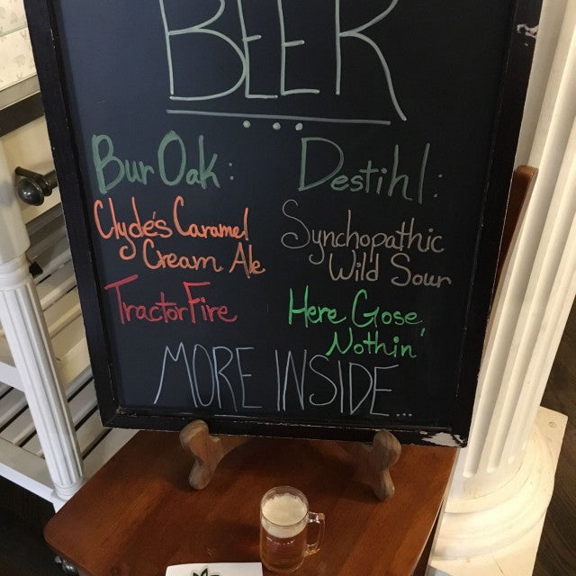 BEER
Bur Oak:
Clyde's Caramel
Cream Ale
TractorFire
Destihl:
Synchopathic
Wild Sour
Here Gose
Nothin'
MORE INSIDE...